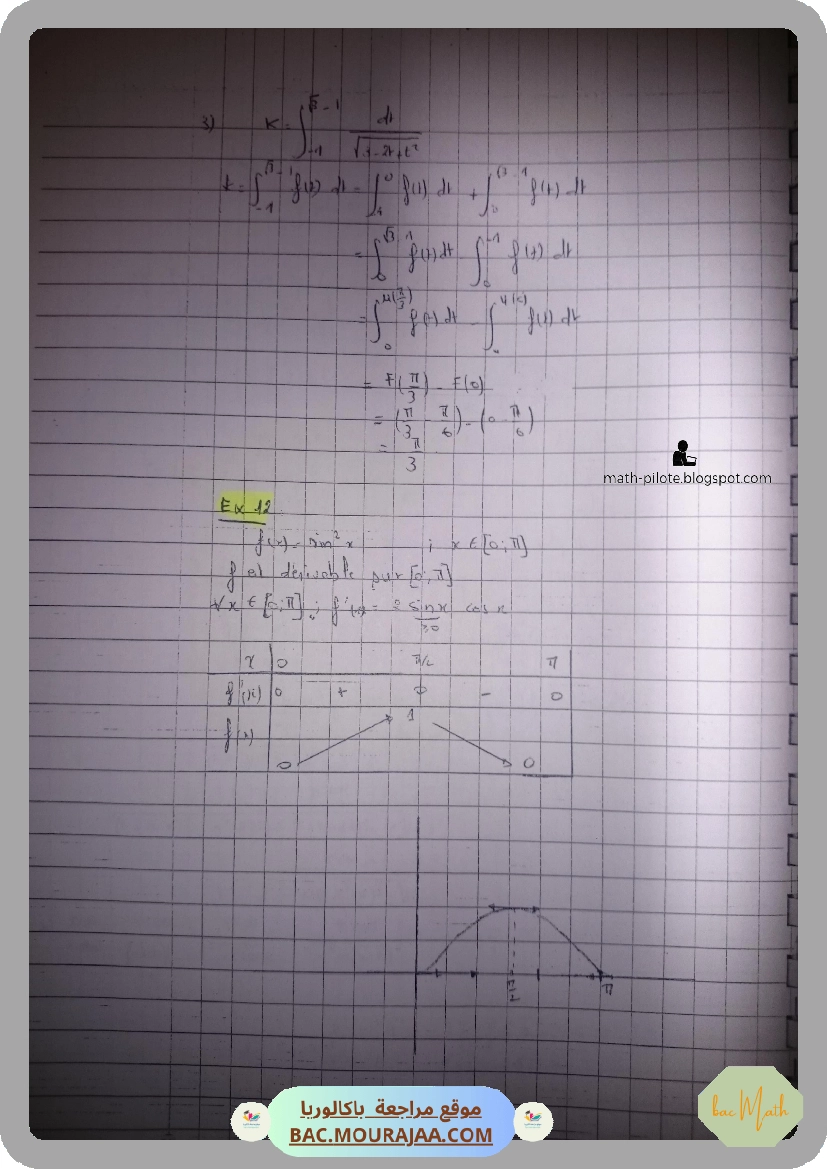 3) K = ∫_{-1}^{√3-1} dt / √(1-2t+t²)
K = ∫_{-1}^{√3-1} f(t) dt = ∫_{-1}^{0} f(t) dt + ∫_{0}^{√3-1} f(t) dt
= ∫_{0}^{√3-1} f(t) dt - ∫_{0}^{-1} f(t) dt
= ∫_{0}^{u(π/3)} f(t) dt - ∫_{0}^{u(0)} f(t) dt
= F(π/3) - F(0)
= (π/3 - π/6) - (0 - π/6)
= π/3
math-pilote.blogspot.com
Ex 12
f(x) = sin² x ; x ∈ [0; π]
f est dérivable sur [0; π]
∀x ∈ [0; π] ; f'(x) = 2 sin x cos x
≥0
x 0 π/2 π
f'(x) 0 + 0 - 0
1
f(x)
0 0
π/2 π
موقع مراجعة باكالوريا
BAC.MOURAJAA.COM
bac Math